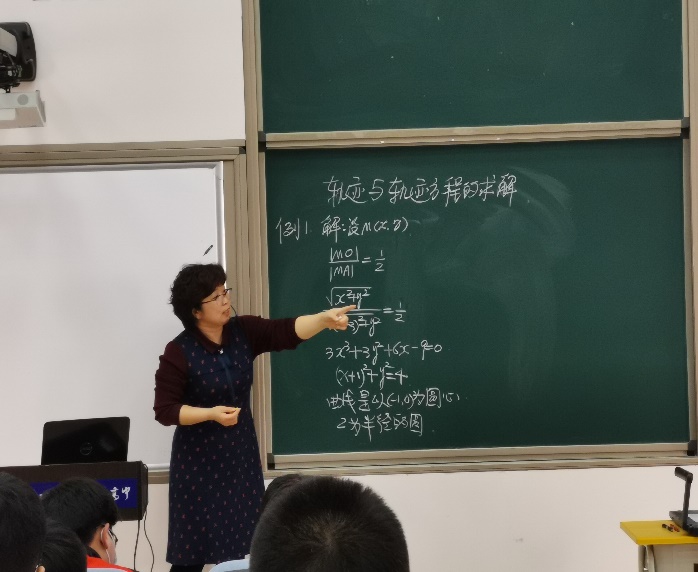 轨迹与轨迹方程的求解
例1 解:设M(x,y)
|MO|/|MA| = 1/2
√x²+y² / 3)²+y² = 1/2
3x²+3y²+6x-9=0
(x+1)²+y²=4
曲线是以(-1,0)为圆心
2为半径的圆
高中